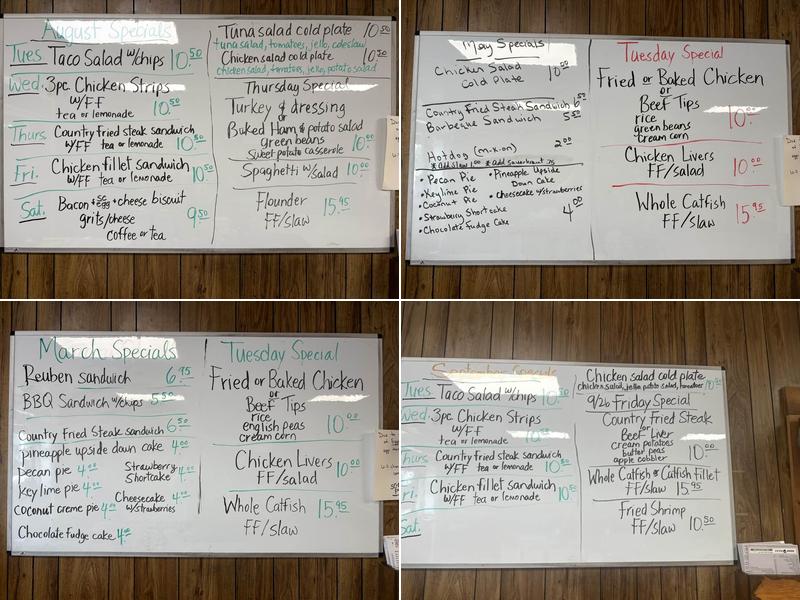 August Specials
Tues Taco Salad w/chips 10.50
Wed. 3pc. Chicken Strips
w/FF
tea or lemonade 10.50
Thurs Country fried steak sandwich
w/FF tea or lemonade 10.50
Fri. Chicken fillet sandwich
w/FF tea or lemonade 10.50
Sat. Bacon + egg + cheese biscuit
grits/cheese
coffee or tea 9.50
Tuna salad cold plate 10.50
tuna salad, tomatoes, jello, coleslaw
Chicken salad cold plate 10.50
chicken salad, tomatoes, jello, potato salad
Thursday Special
Turkey & dressing
or
Baked Ham & potato salad
green beans
sweet potato casserole 10.00
Spaghetti w/salad 10.00
Flounder
FF/slaw 15.95
May Specials
Chicken Salad
Cold Plate 10.00
Country Fried Steak Sandwich 6.50
Barbeque Sandwich 5.50
Hotdog (m-k-on) 2.00
• Pecan Pie
• Keylime Pie
• Coconut Pie
• Strawberry Shortcake
• Chocolate fudge Cake
• Pineapple Upside
Down Cake
• Cheesecake w/strawberries
4.00
Tuesday Special
Fried or Baked Chicken
or
Beef Tips
rice
green beans
cream corn 10.00
Chicken Livers
FF/salad 10.00
Whole Catfish
FF/slaw 15.95
March Specials
Reuben sandwich 6.95
BBQ Sandwich w/chips 5.50
Country Fried Steak sandwich 6.50
pineapple upside down cake 4.00
pecan pie 4.00
Key lime pie 4.00
coconut creme pie 4.00
Chocolate fudge cake 4.00
Strawberry
Shortcake 4.00
Cheesecake
w/strawberries 4.00
Tuesday Special
Fried or Baked Chicken
or
Beef Tips
rice
english peas
cream corn 10.00
Chicken Livers
FF/salad 10.00
Whole Catfish
FF/slaw 15.95
September Specials
Tues Taco Salad w/chips 10.50
Wed. 3pc Chicken Strips
w/FF
tea or lemonade 10.50
Thurs Country fried steak sandwich
w/FF tea or lemonade 10.50
Fri. Chicken fillet sandwich
w/FF tea or lemonade 10.50
Sat.
Chicken salad cold plate
chicken salad, jello, potato salad, tomatoes 10.50
9/26 Friday Special
Country Fried Steak
or
Beef Liver
cream potatoes
butter peas
apple cobbler 10.00
Whole Catfish or Catfish fillet
FF/slaw 15.95
Fried Shrimp
FF/slaw 10.50